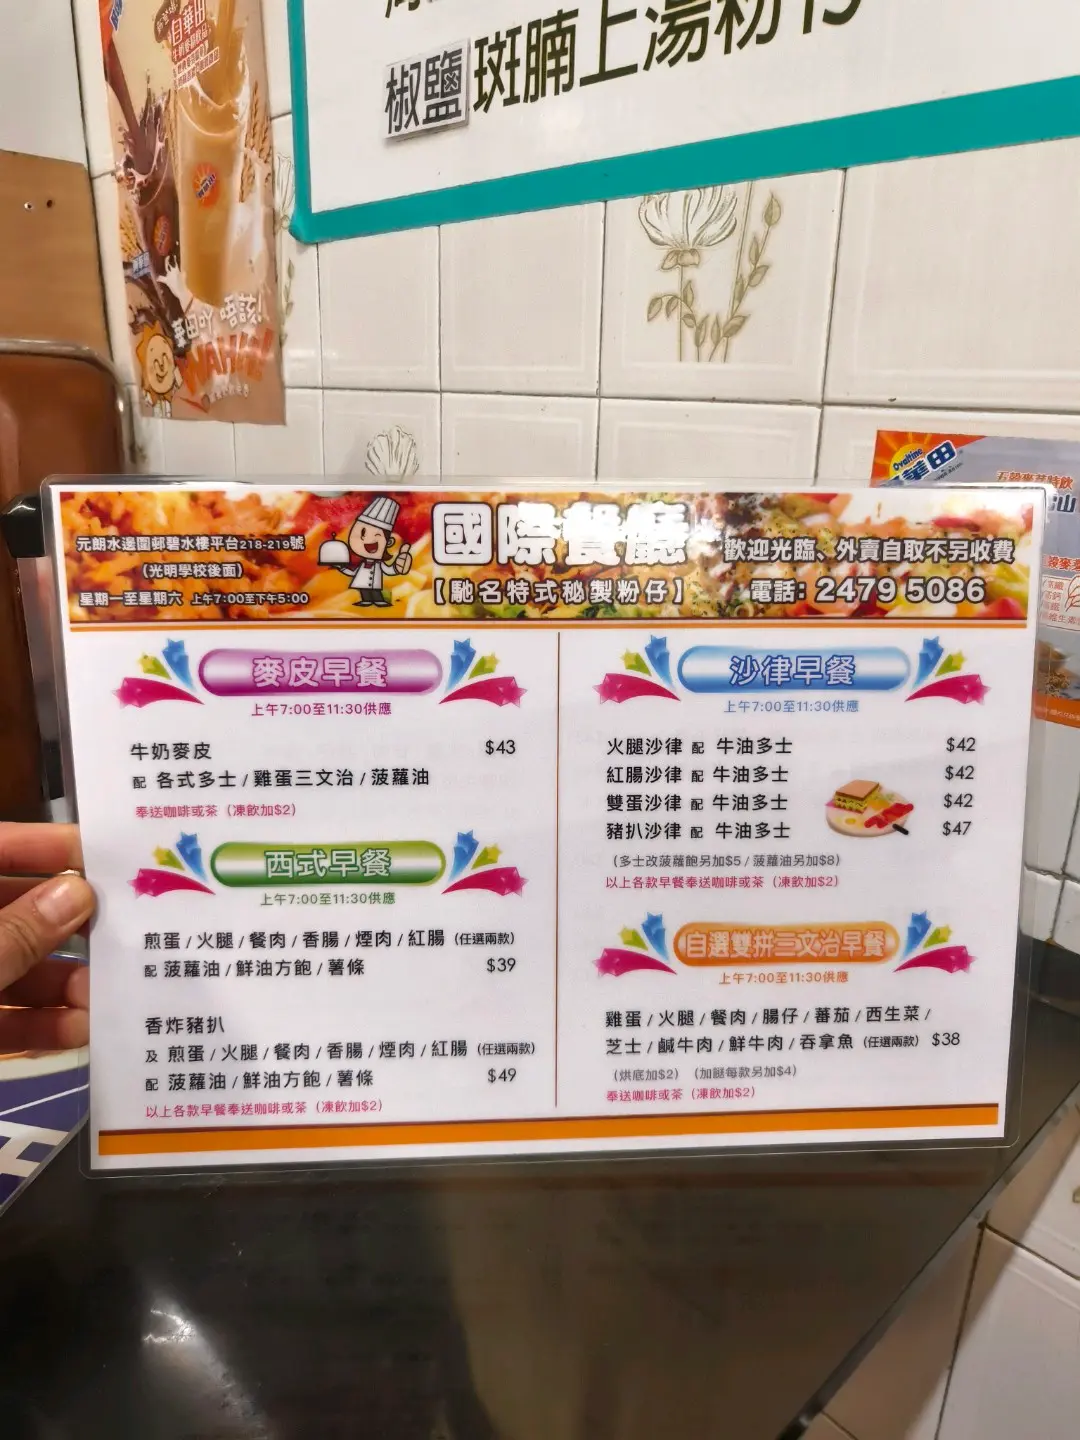 椒鹽 斑腩上湯粉仔
自華田
華田吖 唔該!
WAHIN!
Ovaltine
華田
五穀麥芽特飲
元朗水邊圍邨碧水樓平台218-219號
(光明學校後面)
星期一至星期六 上午7:00至下午5:00
國際餐廳
【馳名特式秘製粉仔】
歡迎光臨、外賣自取不另收費
電話: 2479 5086
麥皮早餐
上午7:00至11:30供應
牛奶麥皮 $43
配 各式多士 / 雞蛋三文治 / 菠蘿油
奉送咖啡或茶（凍飲加$2）
西式早餐
上午7:00至11:30供應
煎蛋 / 火腿 / 餐肉 / 香腸 / 煙肉 / 紅腸 (任選兩款)
配 菠蘿油 / 鮮油方飽 / 薯條 $39
香炸豬扒
及 煎蛋 / 火腿 / 餐肉 / 香腸 / 煙肉 / 紅腸 (任選兩款)
配 菠蘿油 / 鮮油方飽 / 薯條 $49
以上各款早餐奉送咖啡或茶（凍飲加$2）
沙律早餐
上午7:00至11:30供應
火腿沙律 配 牛油多士 $42
紅腸沙律 配 牛油多士 $42
雙蛋沙律 配 牛油多士 $42
豬扒沙律 配 牛油多士 $47
（多士改菠蘿飽另加$5 / 菠蘿油另加$8）
以上各款早餐奉送咖啡或茶（凍飲加$2）
自選雙拼三文治早餐
上午7:00至11:30供應
雞蛋 / 火腿 / 餐肉 / 腸仔 / 蕃茄 / 西生菜 /
芝士 / 鹹牛肉 / 鮮牛肉 / 吞拿魚 (任選兩款) $38
（烘底加$2）（加餸每款另加$4）
奉送咖啡或茶（凍飲加$2）